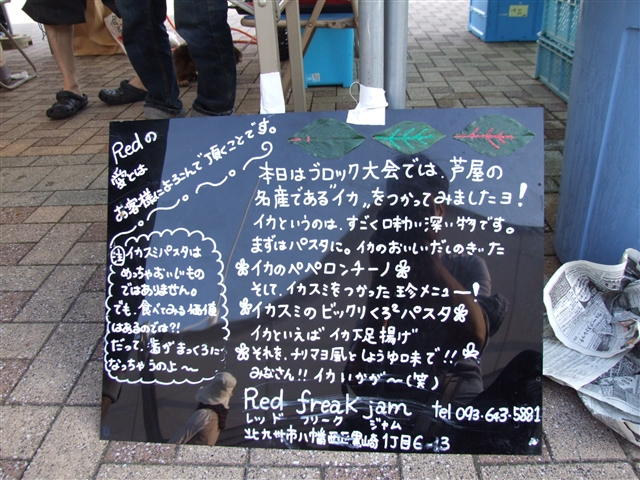 Redの
愛とは
お客様によろこんで頂くことです。
注 イカスミパスタは
めっちゃおいしいもの
ではありません。
でも、食べてみる価値
はあるのでは?!
だって、歯がまっくろに
なっちゃうのよ～
本日はブロック大会では、芦屋の
名産である"イカ"をつかってみましたヨ!
イカというのは、すごく味わい深い物です。
まずはパスタに。イカのおいしいだしのきいた
イカのペペロンチーノ
そして、イカスミをつかった珍メニュー!
イカスミのビックリくろ²パスタ
イカといえばイカ下足揚げ
それを、チリマヨ風としょうゆ味で!!
みなさん!!イカいかが～(笑)
Red freak jam tel 093-643-5881
レッド フリーク ジャム
北九州市八幡西区黒崎1丁目6-13